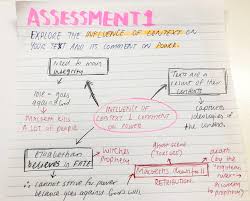 ASSESSMENT 1
EXPLORE THE INFLUENCE OF CONTEXT ON
YOUR TEXT AND ITS COMMENT ON POWER.
Need to main
integrity
role = goes
again = God
Macbeth kills
A lot of people
Texts are a
result of their
contexts
captures
ideologies of
the context
INFLUENCE OF
CONTEXT & COMMENT
ON POWER
Elizabethan
believes in FATE
Witches
Prophecy
cannot strive for power
because goes against God's will
MACBETH'S downfall
RETRIBUTION.
death
(by the
prophecy)